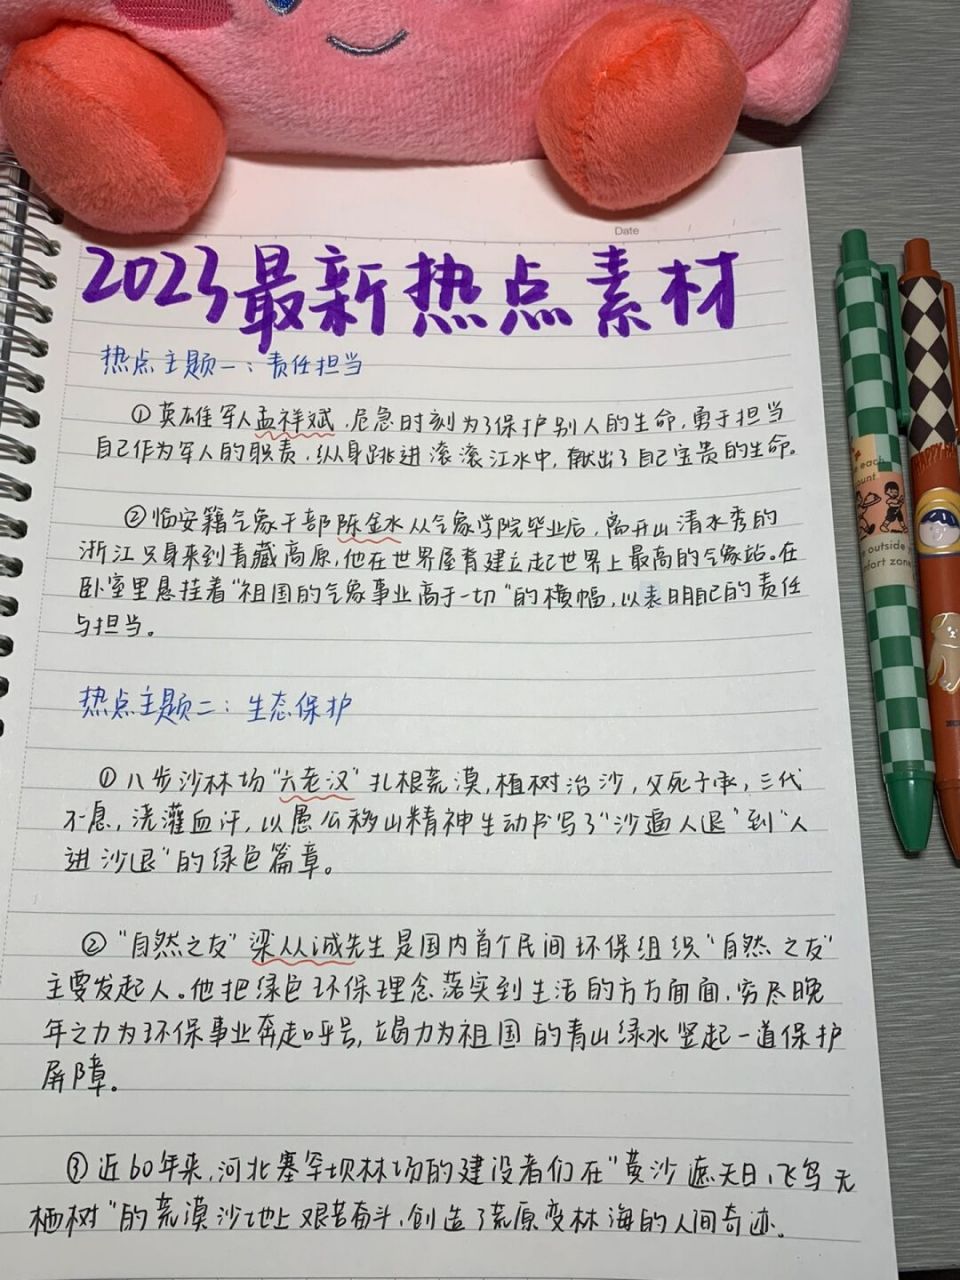 Date / /
2023最新热点素材
热点主题一：责任担当
①英雄军人孟祥斌，危急时刻为了保护别人的生命，勇于担当
自己作为军人的职责，纵身跳进滚滚江水中，献出了自己宝贵的生命。
②临安籍气象干部陈金水从气象学院毕业后，离开山清水秀的
浙江只身来到青藏高原，他在世界屋脊建立起世界上最高的气象站。在
卧室里悬挂着“祖国的气象事业高于一切”的横幅，以表明自己的责任
与担当。
热点主题二：生态保护
①八步沙林场“六老汉”扎根荒漠，植树治沙，父死子承，三代
不息，浇灌血汗，以愚公移山精神生动书写了“沙逼人退”到“人
进沙退”的绿色篇章。
②“自然之友”梁从诫先生是国内首个民间环保组织“自然之友”
主要发起人。他把绿色环保理念落实到生活的方方面面，穷尽晚
年之力为环保事业奔走呼号，竭力为祖国的青山绿水竖起一道保护
屏障。
③近60年来，河北塞罕坝林场的建设者们在“黄沙遮天日，飞鸟无
栖树”的荒漠沙地上艰苦奋斗，创造了荒原变林海的人间奇迹。
each
outside
comfort zone